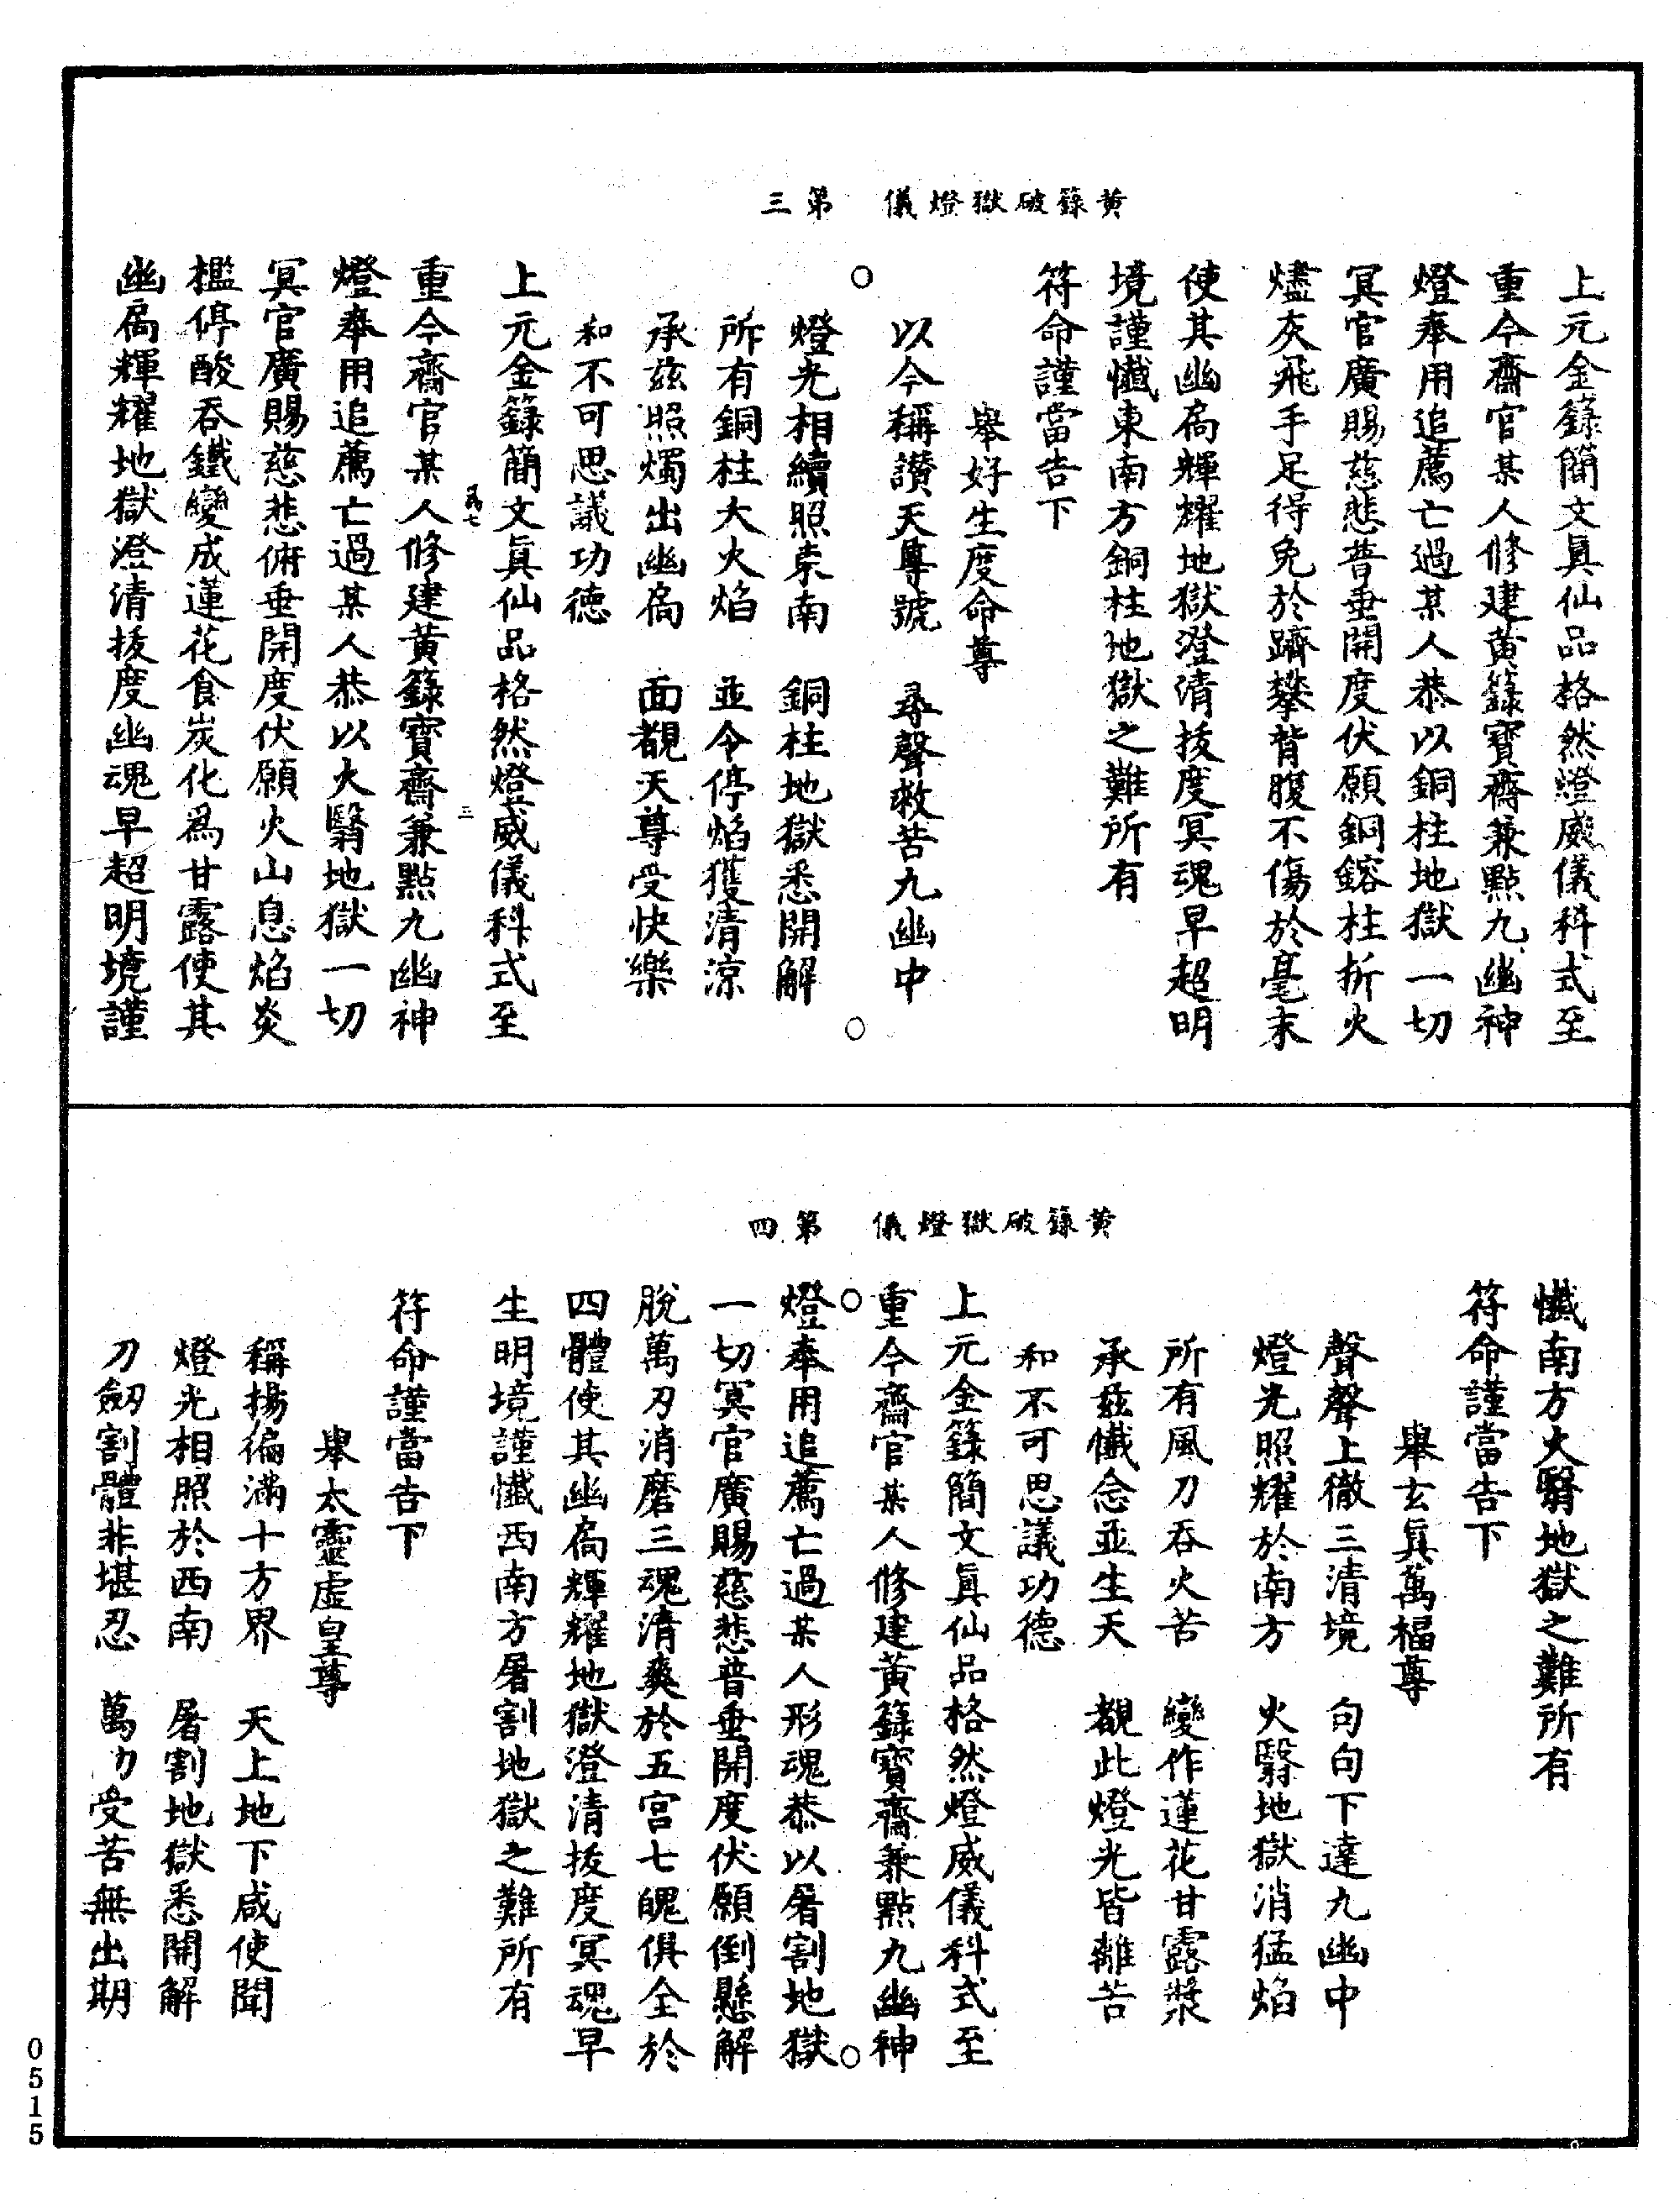 黃籙破獄燈儀　第三
上元金籙簡文眞仙品格然燈威儀科式至
重今齋官某人修建黃籙寶齋兼點九幽神
燈奉用追薦亡過某人恭以銅柱地獄一切
冥官廣賜慈悲普垂開度伏願銅鎔柱折火
燼灰飛手足得免於躋攀背腹不傷於毫末
使其幽扃輝耀地獄澄清拔度冥魂早超明
境謹懺東南方銅柱地獄之難所有
符命謹當告下
舉好生度命尊
以今稱讚天尊號　尋聲救苦九幽中
燈光相續照東南　銅柱地獄悉開解
所有銅柱大火焰　並令停焰獲清涼
承茲照燭出幽扃　面覩天尊受快樂
和不可思議功德
上元金籙簡文眞仙品格然燈威儀科式至
重今齋官某人修建黃籙寶齋兼點九幽神
燈奉用追薦亡過某人恭以火翳地獄一切
冥官廣賜慈悲俯垂開度伏願火山息焰炎
檻停酸吞鐵變成蓮花食炭化爲甘露使其
幽扃輝耀地獄澄清拔度幽魂早超明境謹
黃籙破獄燈儀　第四
懺南方火翳地獄之難所有
符命謹當告下
舉玄眞萬福尊
聲聲上徹三清境　句句下達九幽中
燈光照耀於南方　火翳地獄消猛焰
所有風刀吞火苦　變作蓮花甘露漿
承茲懺念並生天　覩此燈光皆離苦
和不可思議功德
上元金籙簡文眞仙品格然燈威儀科式至
重今齋官某人修建黃籙寶齋兼點九幽神
燈奉用追薦亡過某人形魂恭以屠割地獄
一切冥官廣賜慈悲普垂開度伏願倒懸解
脫萬刃消磨三魂清爽於五宮七魄俱全於
四體使其幽扃輝耀地獄澄清拔度冥魂早
生明境謹懺西南方屠割地獄之難所有
符命謹當告下
舉太靈虛皇尊
稱揚徧滿十方界　天上地下咸使聞
燈光相照於西南　屠割地獄悉開解
刀劒割體非堪忍　萬劫受苦無出期
0515